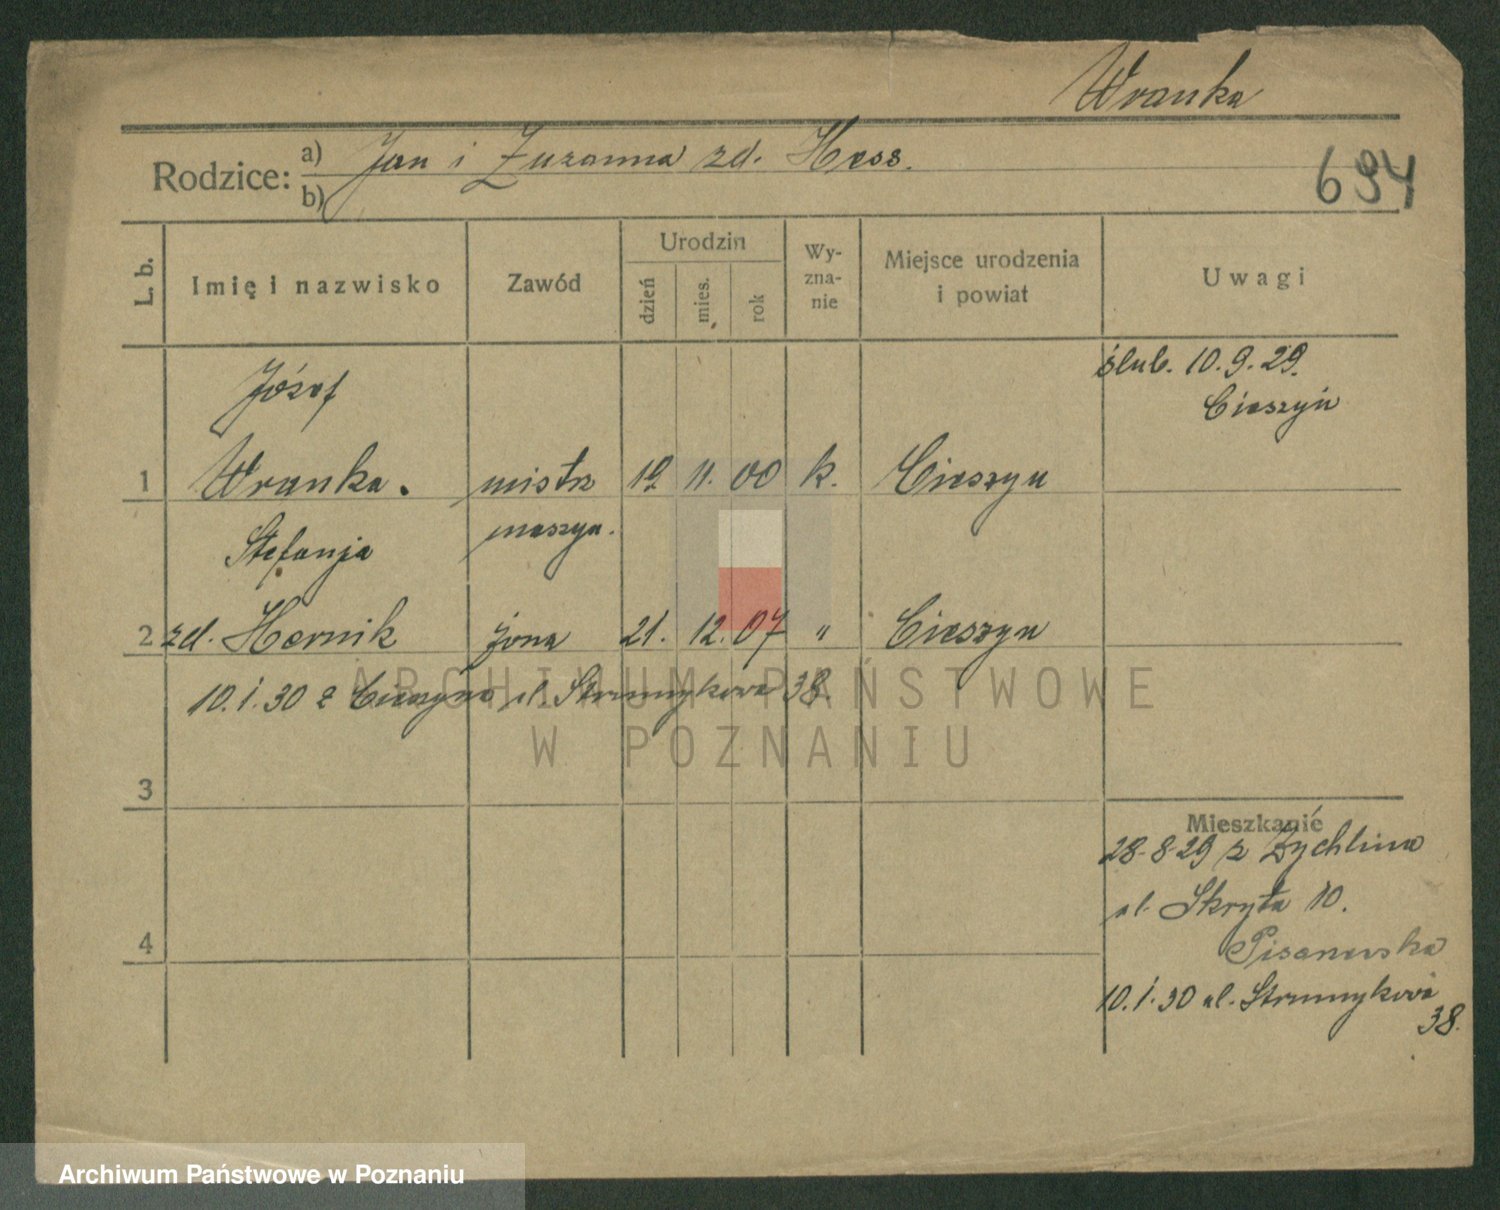 Wranka
Rodzice: a) Jan i Zuzanna zd. Hess.
b)
694
L. b. Imię i nazwisko Zawód Urodzin dzień mies. rok Wy-zna-nie Miejsce urodzenia i powiat Uwagi
Józef
ślub. 10.9.29.
Cieszyń
1 Wranka. mistrz 19 11. 00 k. Cieszyn
maszyn.
Stefanja
2 zd. Hernik żona 21. 12. 07 " Cieszyn
10.1.30 z Cieszyna ul. Strumykowa 38.
ARCHIWUM PAŃSTWOWE
W POZNANIU
3
Mieszkanie
28-8-29 z Żychlina
ul. Skryta 10.
4
10.1.30 ul. Strumykowa
38.
Archiwum Państwowe w Poznaniu